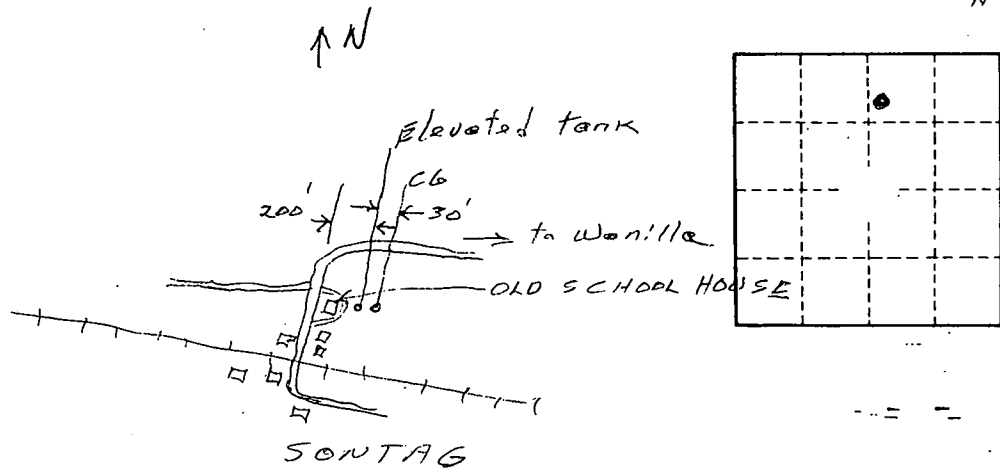 N
N
Elevated tank
C6
200'
30'
to Wanilla
OLD SCHOOL HOUSE
SONTAG